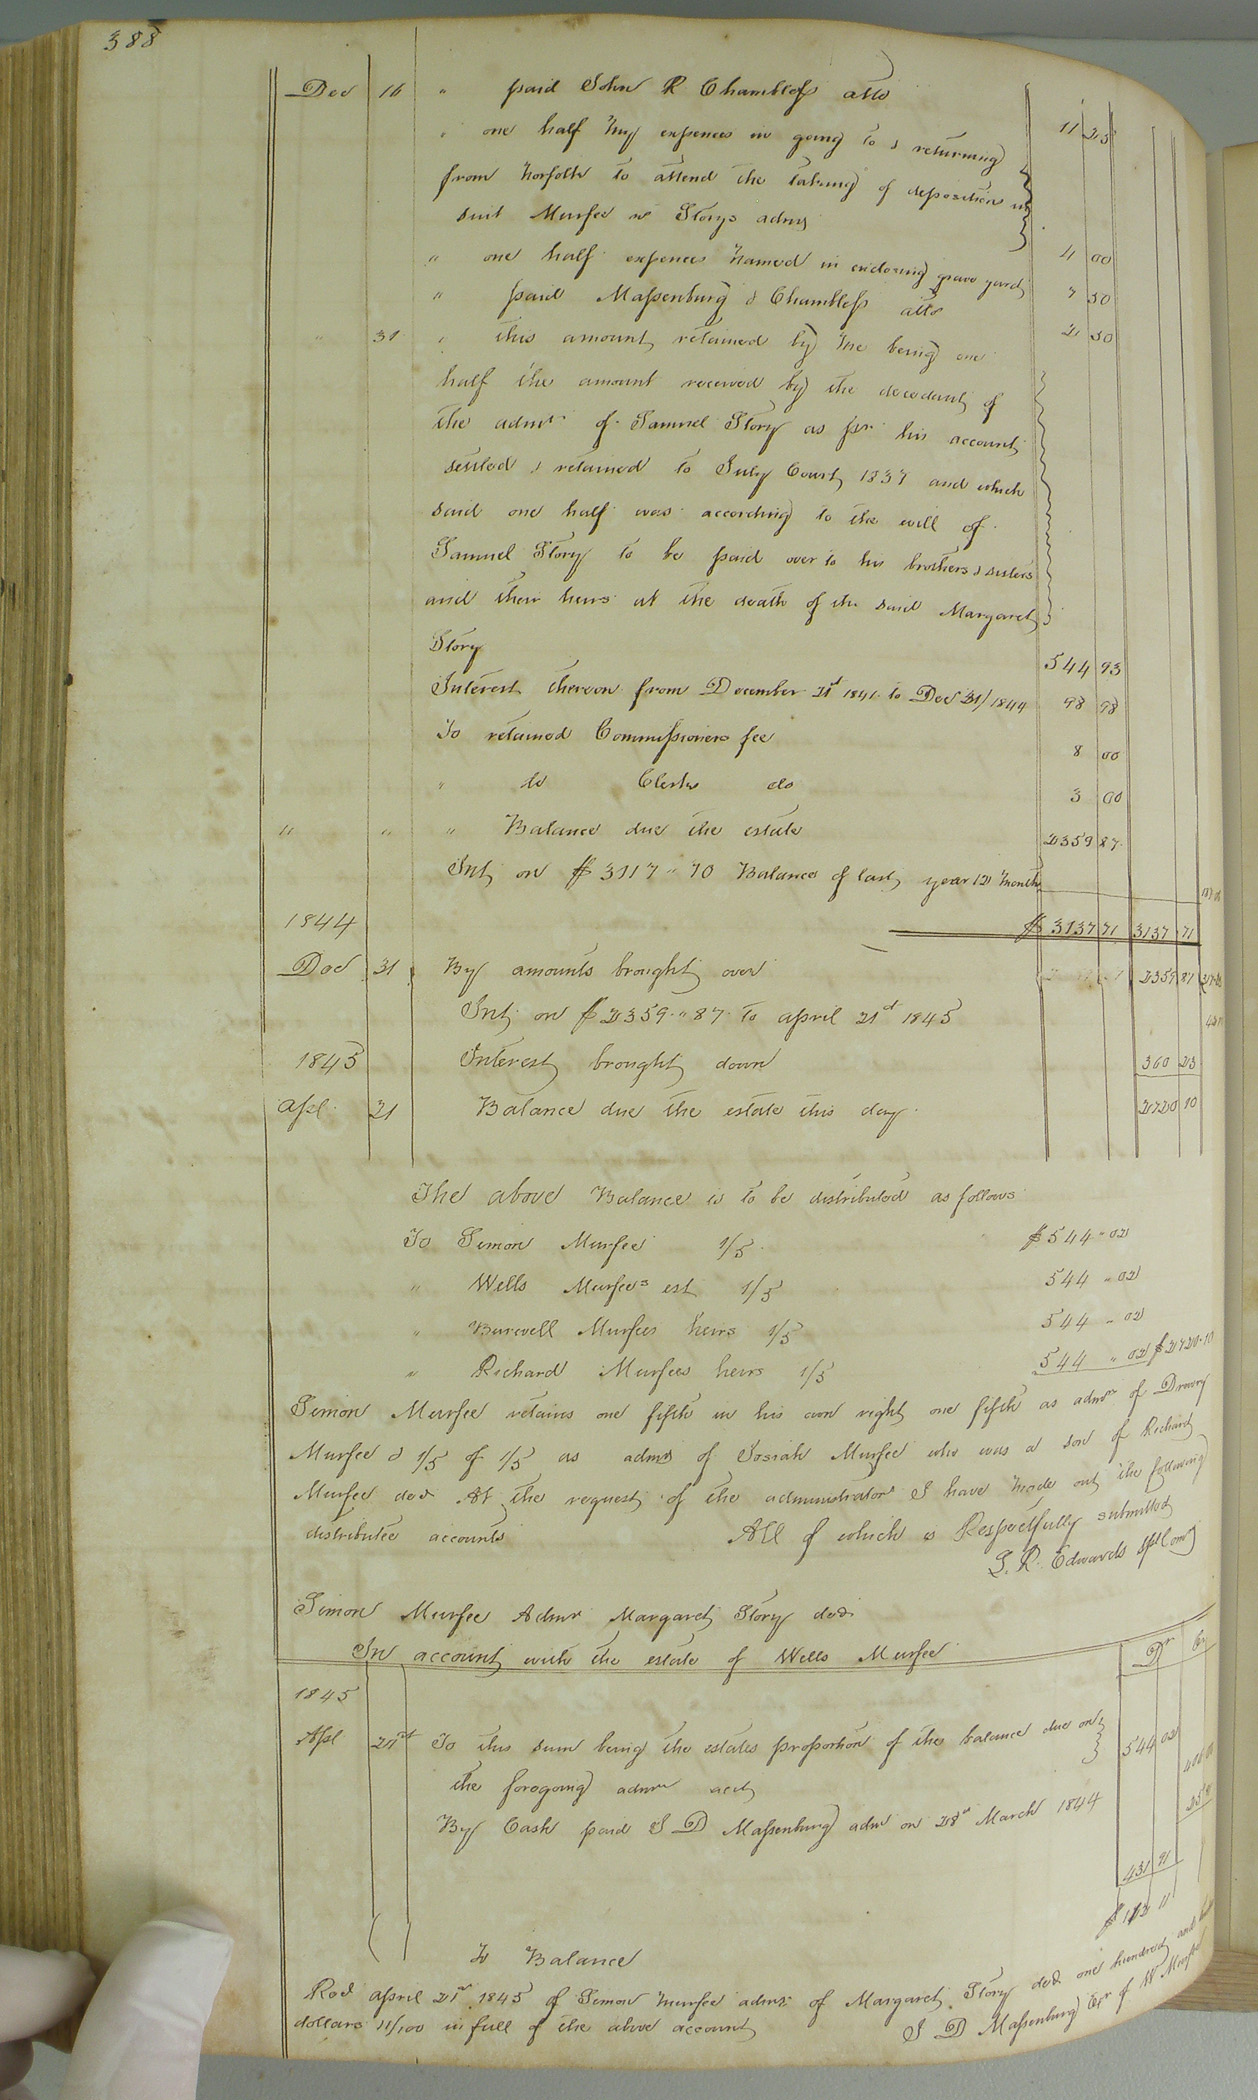 388
Dec 16 " paid John R Chambless atto 11 25
" one half my expences in going to & returning
from Norfolk to attend the taking of deposition in
suit Murfee vs Storys admr 4 00
" one half expences named in enclosing grave yard 7 50
" paid Massenburg & Chambless atto 2 50
" 31 " this amount retained by me being one
half the amount received by the decedant of
the admr of Samuel Story as pr his account
settled & retained to July Court 1837 and which
said one half was according to the will of
Samuel Story to be paid over to his brothers & sisters
and their heirs at the death of the said Margaret
Story 544 93
Interest thereon from December 21st 1841 to Dec 31/1844 98 98
To retained Commissioners fee 8 00
" do Clerks do 3 00
" " " Balance due the estate 2359 87
Int on $3117 " 70 Balance of last year 12 months
1844 $3137 71 3137 71
Dec 31 By amounts brought over 2359 87
Int on $2359 " 87 to april 21st 1845
1845 Interest brought down 360 23
Apl 21 Balance due the estate this day 2720 10
The above Balance is to be distributed as follows
To Simon Murfee 1/5 $544 " 02
" Wells Murfees est 1/5 544 " 02
" Burwell Murfees heirs 1/5 544 " 02
" Richard Murfees heirs 1/5 544 " 02 $2720.10
Simon Murfee retains one fifth in his own right one fifth as admr of Drewry
Murfee & 1/5 of 1/5 as admr of Josiah Murfee who was a son of Richard
Murfee decd At the request of the administrator I have made out the following
distributee accounts All of which is Respectfully submitted
S. R. Edwards Spl Com
Simon Murfee Admr Margaret Story decd
In account with the estate of Wells Murfee Dr Cr
1845
Apl 21st To this sum being the estates proportion of the balance due on
the foregoing admr acct 544 02
By Cash paid S D Massenburg admr on 28th March 1844
431 91
$112 11
To Balance
Recd april 21st 1845 of Simon Murfee admr of Margaret Story decd one hundred and
dollars 11/100 in full of the above account
S D Massenburg Exr of W Murfee